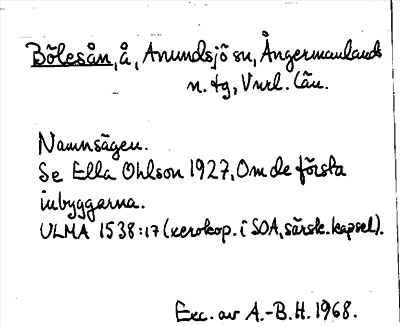 Bölesån, å, Anundsjö sn, Ångermanlands
n. tg, Vnrl. län.
Namnsägen.
Se Ella Ohlson 1927, Om de första
inbyggarna.
ULMA 1538:17 (xerokop. i SOA, särsk. kapsel).
Exc. av A.-B.H. 1968.